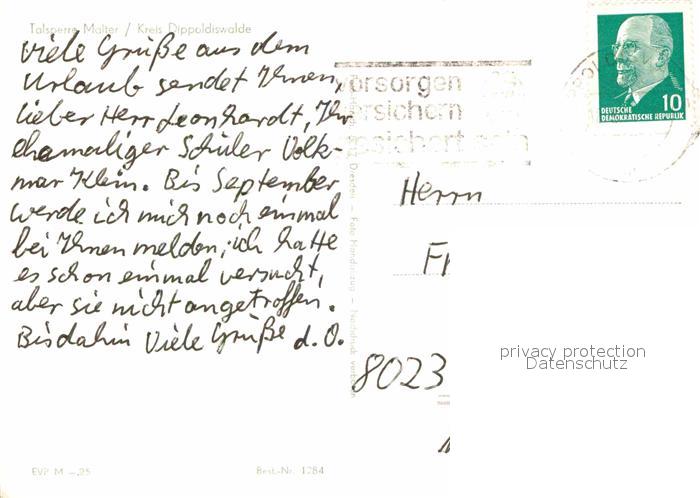 Talsperre Malter / Kreis Dippoldiswalde
Viele Grüße aus dem
Urlaub sendet Ihnen,
lieber Herr Leonhardt, Ihr
ehemaliger Schüler Volk-
mar Klein. Bis September
werde ich mich noch einmal
bei Ihnen melden; ich hatte
es schon einmal versucht,
aber sie nicht angetroffen.
Bis dahin Viele Grüße d. O.
EVP M -,25
Best.-Nr. 1284
Dresden — Foto Handrick — Nachdruck verboten
vorsorgen
versichern
gesichert sein
10
DEUTSCHE
DEMOKRATISCHE REPUBLIK
Herrn
8023
privacy protection
Datenschutz